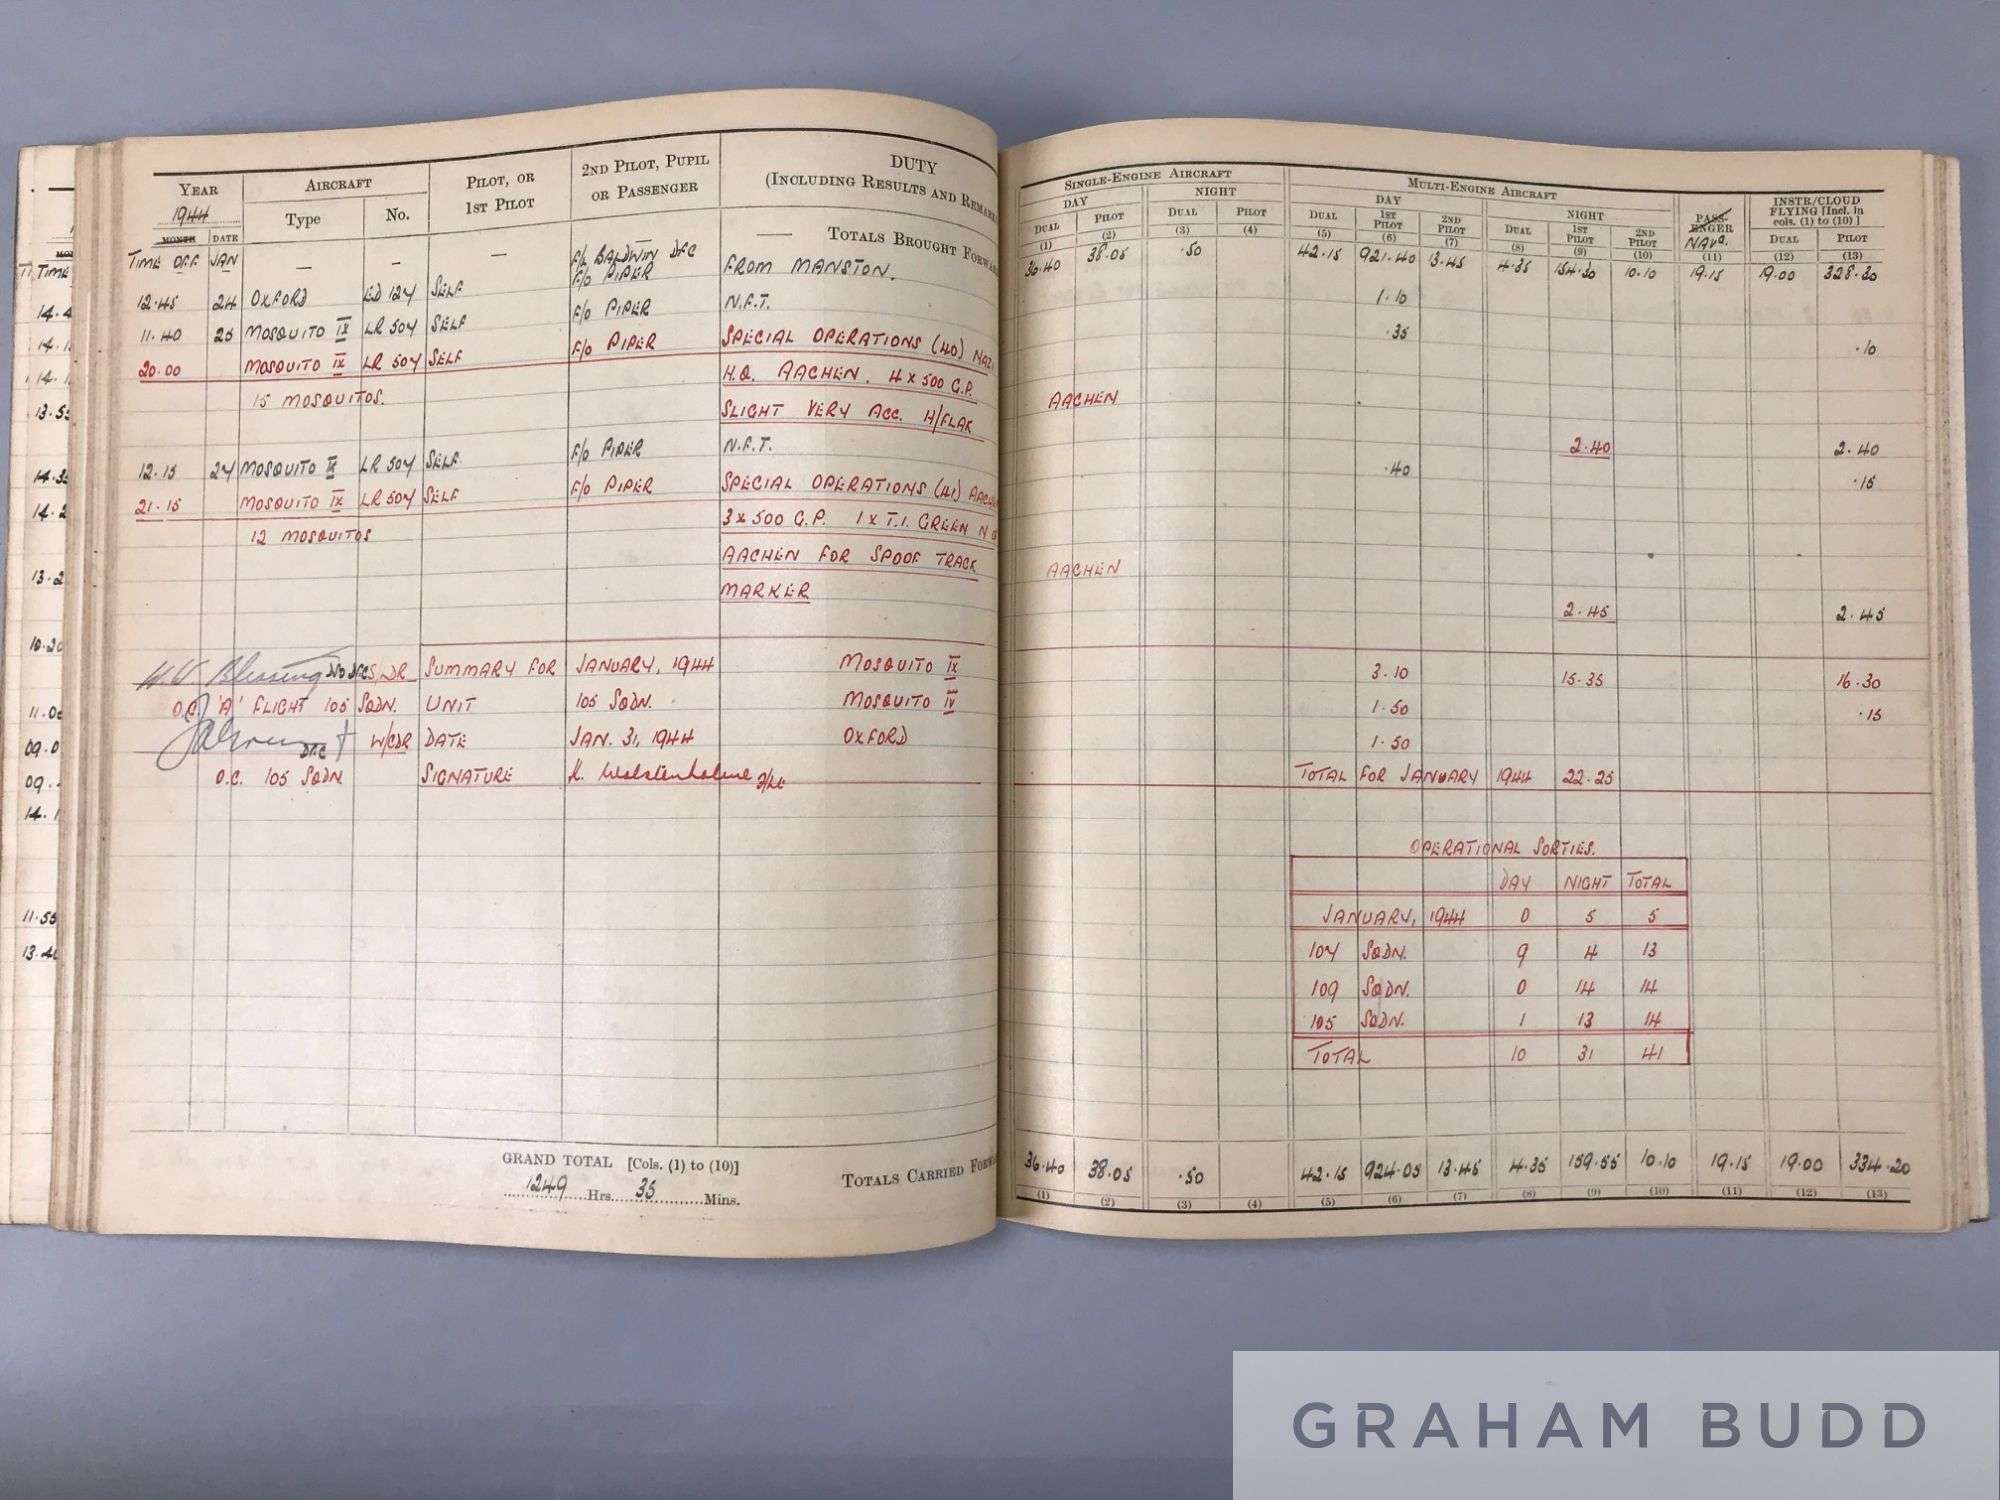 YEAR 1944
AIRCRAFT
PILOT, OR 1ST PILOT
2ND PILOT, PUPIL OR PASSENGER
DUTY
(INCLUDING RESULTS AND REMARK
MONTH DATE Type No.
— TOTALS BROUGHT FORWA
TIME OFF JAN — — — F/L BALDWIN DFC
12.45 24 OXFORD ED 124 SELF F/O PIPER FROM MANSTON.
11.40 25 MOSQUITO IX LR 504 SELF F/O PIPER N.F.T.
20.00 MOSQUITO IX LR 504 SELF F/O PIPER SPECIAL OPERATIONS (40) NAZI
15 MOSQUITOS. H.Q. AACHEN. 4 x 500 G.P.
SLIGHT VERY ACC. H/FLAK
12.15 27 MOSQUITO IX LR 504 SELF F/O PIPER N.F.T.
21.15 MOSQUITO IX LR 504 SELF F/O PIPER SPECIAL OPERATIONS (41)
12 MOSQUITOS 3 x 500 G.P. 1 x T.I. GREEN N
AACHEN FOR SPOOF TRACK
MARKER
W.W. Blessing DSO DFC S/LDR SUMMARY FOR JANUARY, 1944 MOSQUITO IX
O.C. 'A' FLIGHT 105 SQDN. UNIT 105 SQDN. MOSQUITO IV
DFC W/CDR DATE JAN. 31, 1944 OXFORD
O.C. 105 SQDN SIGNATURE K. Wolstenholme F/Lt
GRAND TOTAL [Cols. (1) to (10)]
1249 Hrs. 35 Mins.
TOTALS CARRIED FORWA
SINGLE-ENGINE AIRCRAFT
MULTI-ENGINE AIRCRAFT
PASS-ENGER NAVR.
INSTR/CLOUD FLYING [Incl. in cols. (1) to (10)]
DAY NIGHT DAY NIGHT
DUAL PILOT DUAL PILOT DUAL 1ST PILOT 2ND PILOT DUAL 1ST PILOT 2ND PILOT DUAL PILOT
(1) (2) (3) (4) (5) (6) (7) (8) (9) (10) (11) (12) (13)
36.40 38.05 .50 42.15 921.40 13.45 4.35 154.30 10.10 19.15 19.00 328.30
1.10
.35 .10
AACHEN
2.40 2.40
.40 .15
AACHEN
2.45 2.45
3.10 15.35 16.30
1.50 .15
1.50
TOTAL FOR JANUARY 1944 22.25
OPERATIONAL SORTIES.
DAY NIGHT TOTAL
JANUARY, 1944 0 5 5
107 SQDN. 9 4 13
109 SQDN. 0 14 14
105 SQDN. 1 13 14
TOTAL 10 31 41
36.40 38.05 .50 42.15 924.05 13.45 4.35 159.55 10.10 19.15 19.00 334.20
(1) (2) (3) (4) (5) (6) (7) (8) (9) (10) (11) (12) (13)
GRAHAM BUDD